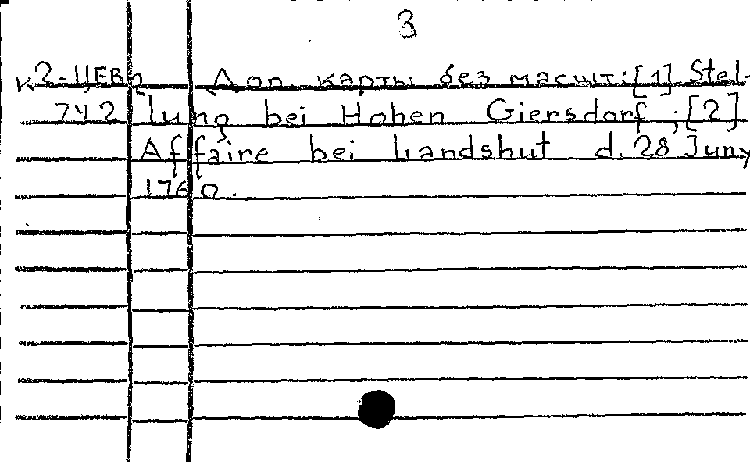 3
К2-ЦЕВр Доп. карты без масшт.:[1] Stel-
742 lung bei Hohen Giersdorf ; [2]
Affaire bei Landshut d. 28 Juny
1760.